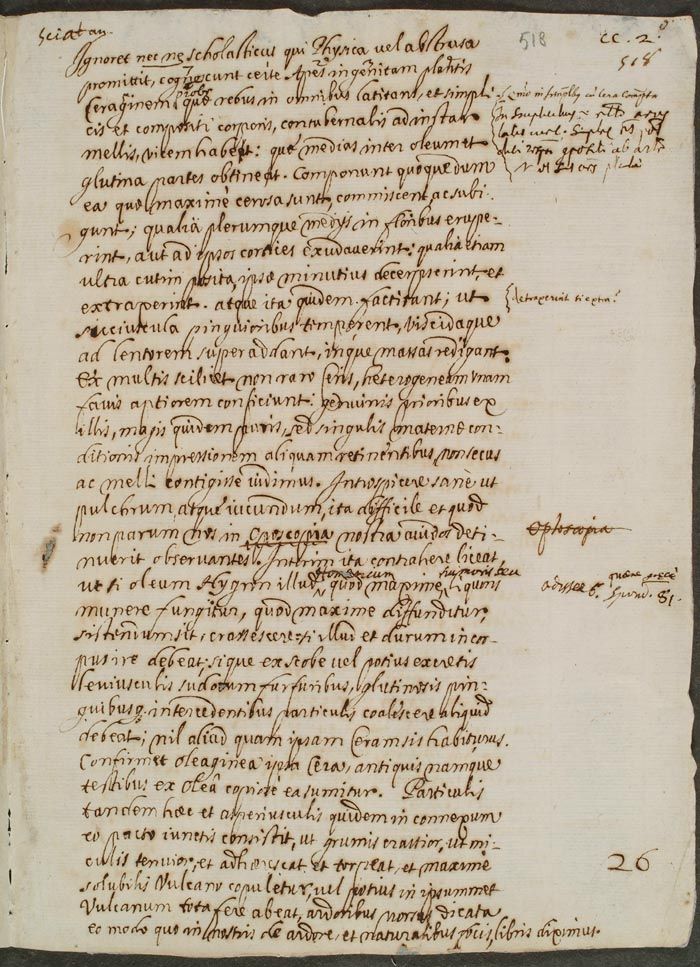 sciat an.
518
CC. 2.
518
Ignoret nec ne scholasticus qui Physica vel abstrusa
promittit, cognoscunt certe Apes ingenitam plantis
probe
Ceraginem, quae rebus in omnibus latitans, et simpli
cis et compositi corporis, contubernalis ad instar
mellis, vicem habeat: quae medias inter oleum et
glutina partes obtineat. Componunt quoque dum
ea quae maxime cerosa sunt, commiscent ac subi-
gunt; qualia plerumque medijs in floribus erupe-
rint, aut ad ipsos cortices exudaverint: qualia etiam
ultra cutim posita, ipsae minutius decerpserint et
extraxerint. atque ita quidem factitant; ut
detraxerint
succiuscula pinguioribus temperent, viscidaque
ad lentorem superaddant, inque massas redigant.
Ex multis scilicet non raro Ceris, heterogeneam unam
favis aptiorem conficiunt: genuinis prioribus ex
illis, majis quidem puris, sed singulis maternae con-
ditionis impressionem aliquam retinentibus, non secus
ac melli contigisse vidimus. Introspicere sane ut
pulchrum, atque iucundum, ita difficile et quod
non parum nos in Croscopia nostra avidos deti-
nuerit observantes. Interim ita contrahere liceat,
ut si oleum Hygron illud, quod maxime liquoris
Homericum
humoris seu
munere fungitur, quod maxime diffunditur,
odissee 6.
81.
sistendum sit, crassescere: si illud et durum in cor-
pus ire debeat; sique ex scobe vel potius excretis
leviusculis sudorum furfuribus, glutinosis pin-
guibusq. intercedentibus particulis coalescere aliquid
debeat; nil aliud quam ipsam Ceram sis habiturus.
Confirmet oleaginea ipsa Cera, antiquis namque
testibus ex Olea copiose ea sumitur. Particulis
tandem haec et asperiusculis quidem in connexum
eo pacto iunctis consistit, ut grumis crassior, ut mi-
culis tenuior, et adhaerescat et torpeat, et maxime
26
solubilis Vulcano copuletur, vel potius in ipsummet
Vulcanum tota fere abeat, ardoribus nostris dicata
eo modo quo in nostris de ardore, et naturalibus libris diximus.